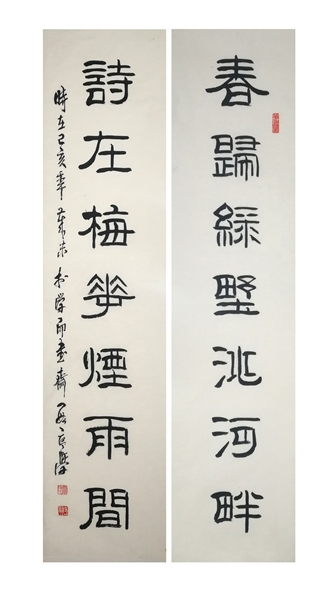 春歸綠墅沁河畔
詩在梅華煙雨間
時在己亥年歲末於學而書齋